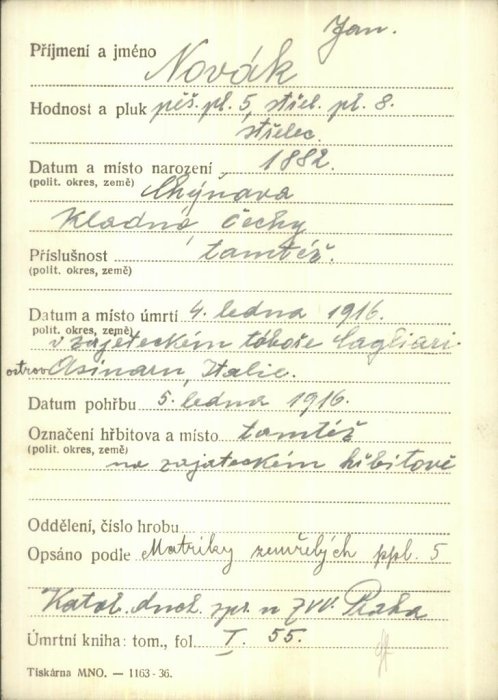 Jan.
Příjmení a jméno Novák
Hodnost a pluk pěš. pl. 5, střel. pl. 8.
střelec
Datum a místo narození 1882.
(polit. okres, země) Chýnava
Kladno, Čechy
Příslušnost tamtéž.
(polit. okres, země)
Datum a místo úmrtí 4. ledna 1916.
polit. okres, země)
v zajateckém táboře Cagliari-
ostrov Asinara, Italie.
Datum pohřbu 5. ledna 1916.
Označení hřbitova a místo tamtéž
(polit. okres, země)
na zajateckém hřbitově
Oddělení, číslo hrobu
Opsáno podle Matriky zemřelých ppl. 5
Katol. duch. spr. u ZVV. Praha
Úmrtní kniha: tom., fol. I. 55.
Tiskárna MNO. — 1163-36.